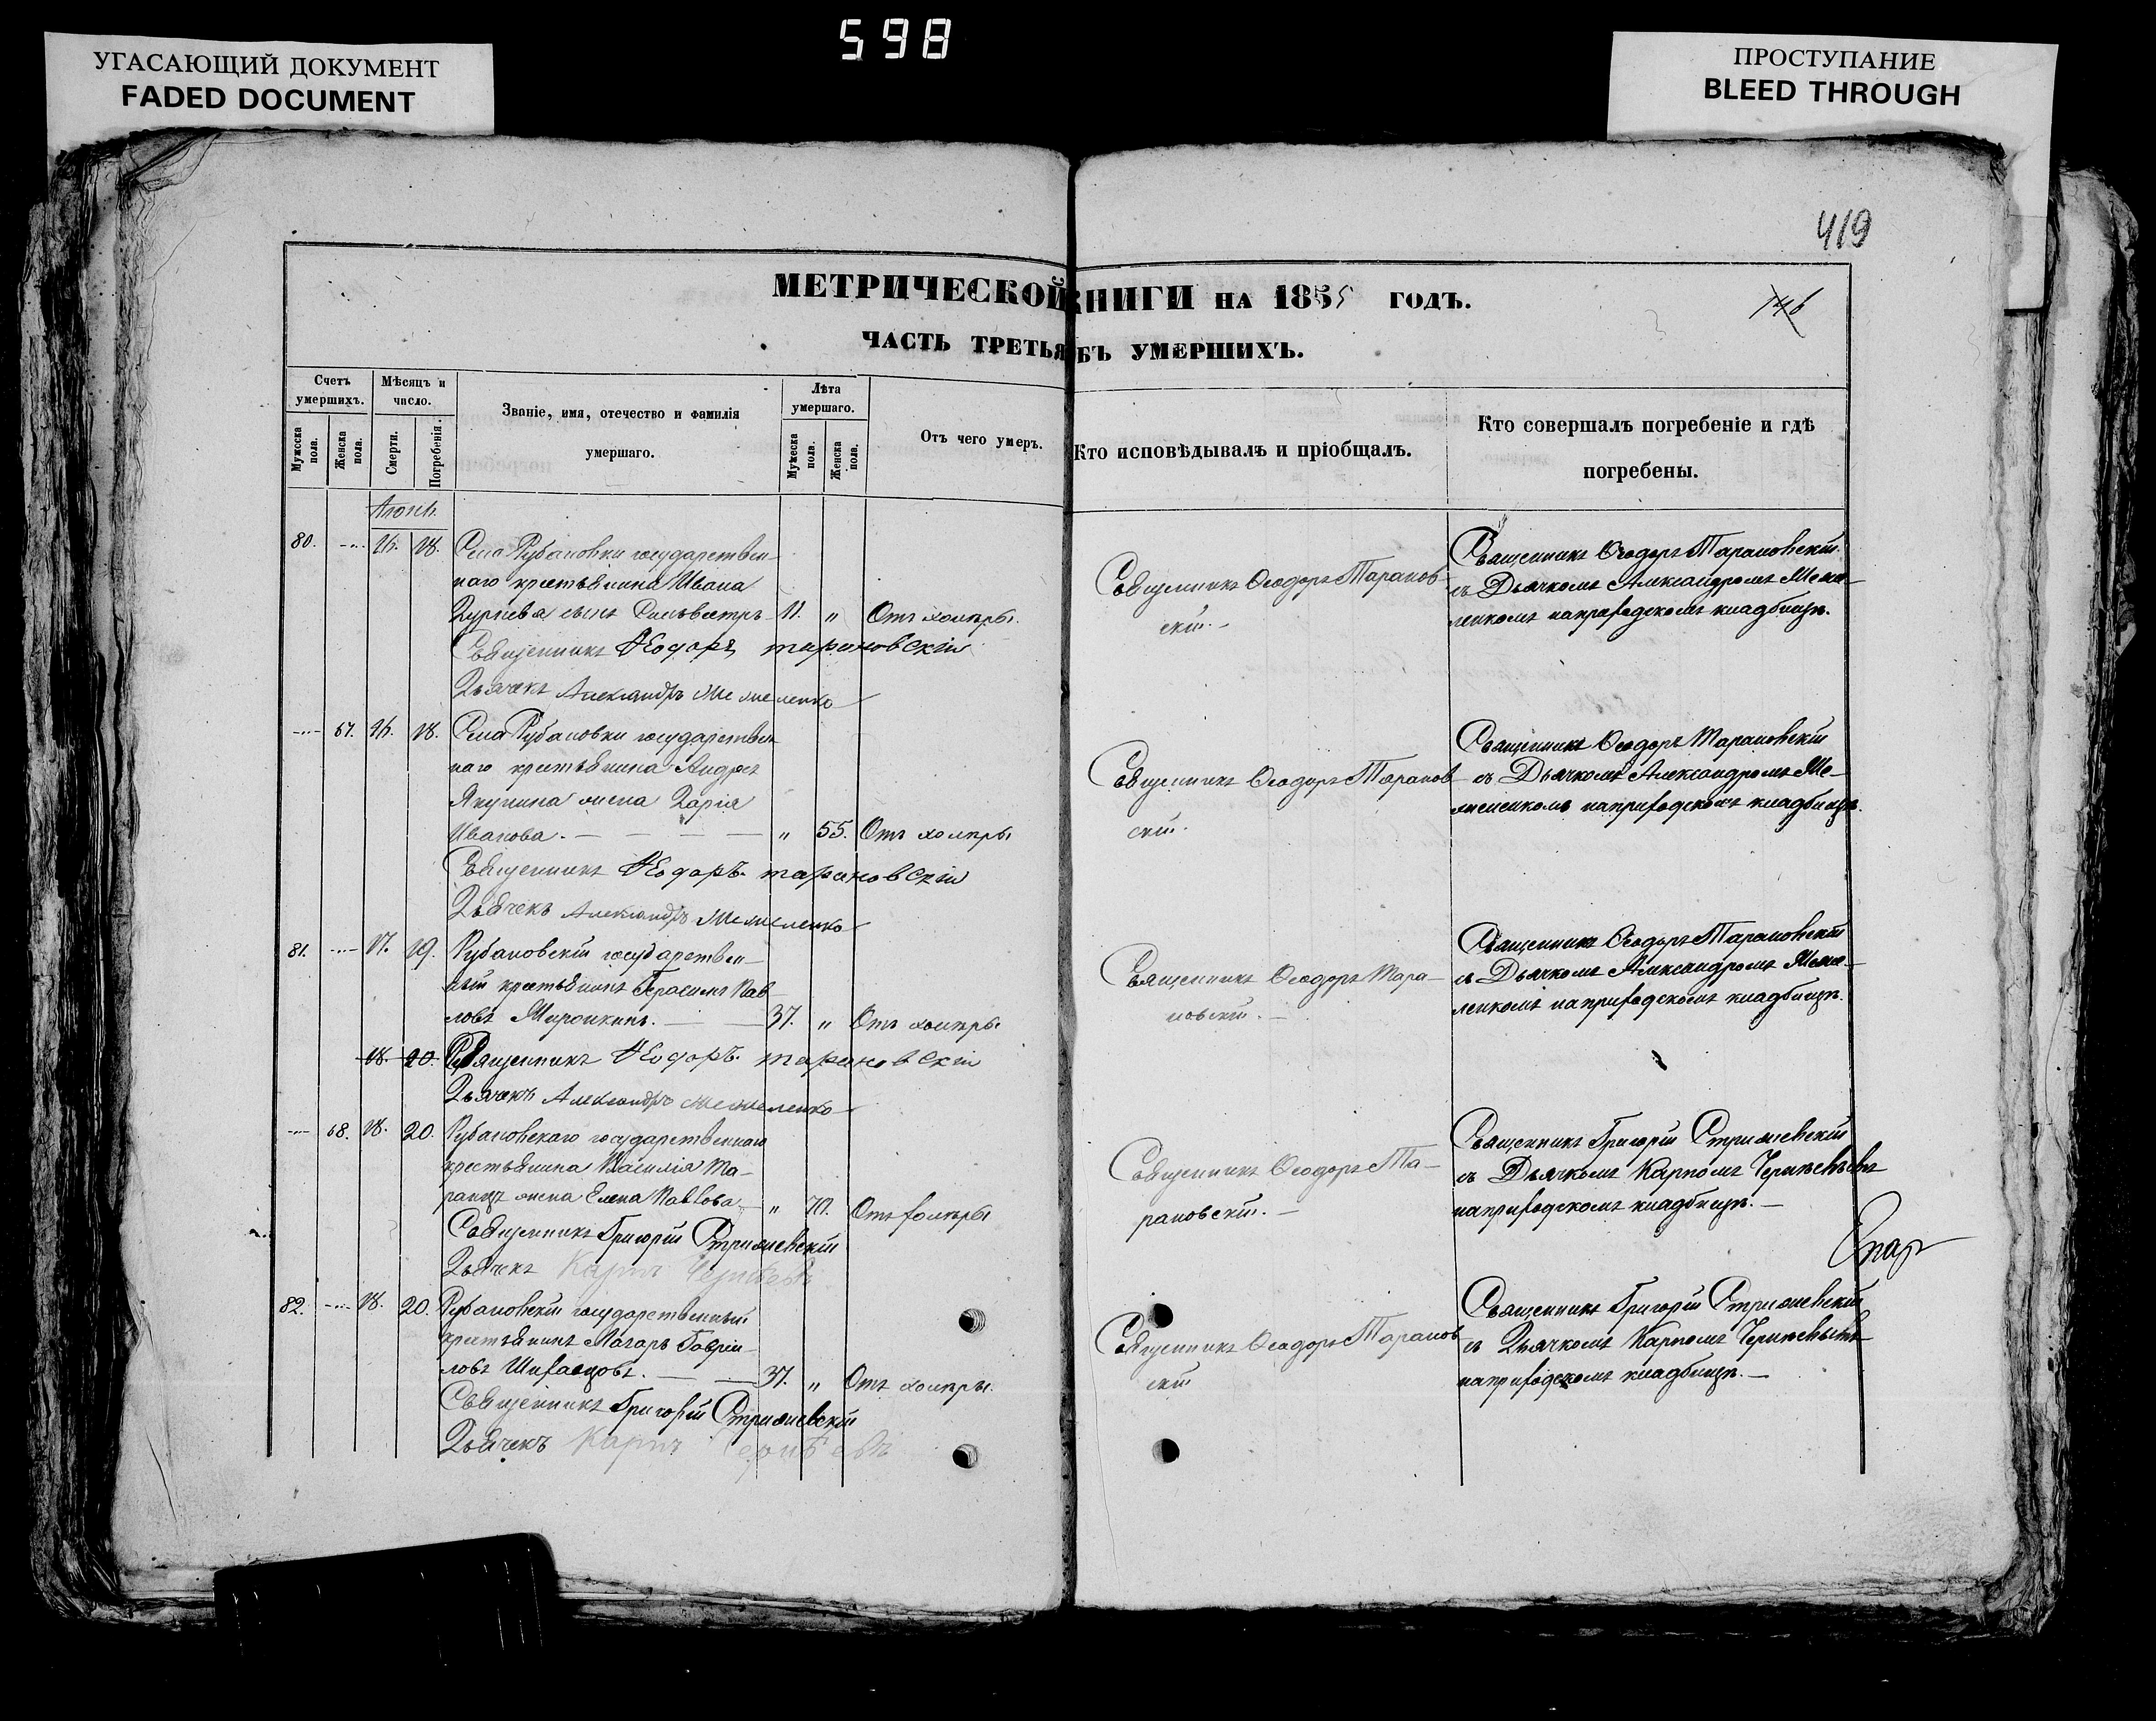 598
УГАСАЮЩИЙ ДОКУМЕНТ
FADED DOCUMENT
ПРОСТУПАНИЕ
BLEED THROUGH
419
146
МЕТРИЧЕСКОЙ КНИГИ НА 1855 ГОДЪ.
ЧАСТЬ ТРЕТЬЯ БЪ УМЕРШИХЪ.
Счетъ умершихъ.
Мужеска пола.
Женска пола.
Мѣсяцъ и число.
Смерти.
Погребенія.
Званіе, имя, отечество и фамилія
умершаго.
Лѣта умершаго.
Мужеска пола.
Женска пола.
Отъ чего умеръ.
Кто исповѣдывалъ и пріобщалъ.
Кто совершалъ погребеніе и гдѣ
погребены.
80. 18. Села Рубановки государствен-
наго крестьянина Ивана
сынъ 11. „ Отъ холеры.
Священникъ Ѳеодоръ Тарановскій
Дьячекъ Александръ
Священникъ Ѳеодоръ Таранов-
скій.
Священникъ Ѳеодоръ Тарановскій
съ Дьячкомъ Александромъ
на приходскомъ кладбищѣ.
67. 18. Села Рубановки государствен-
наго крестьянина Андрея
Якунина жена Дарія
Иванова. „ 55. Отъ холеры
Священникъ Ѳеодоръ Тарановскій
Дьячекъ Александръ
Священникъ Ѳеодоръ Таранов-
скій.
Священникъ Ѳеодоръ Тарановскій
съ Дьячкомъ Александромъ
на приходскомъ кладбищѣ.
81. 17. 19. Рубановскій государствен-
ный крестьянинъ Герасимъ Пав-
ловъ 37. „ Отъ холеры
18. 20. Священникъ Ѳеодоръ Тарановскій
Дьячекъ Александръ
Священникъ Ѳеодоръ Тара-
новскій.
Священникъ Ѳеодоръ Тарановскій
съ Дьячкомъ Александромъ
на приходскомъ кладбищѣ.
68. 18. 20. Рубановскаго государственнаго
крестьянина Василія Та-
жена Елена Павлова „ 70. Отъ холеры
Священникъ Григорій Стрижевскій
Дьячекъ Карпъ
Священникъ Ѳеодоръ Та-
рановскій.
Священникъ Григорій Стрижевскій
съ Дьячкомъ Карпомъ
на приходскомъ кладбищѣ.
82. 18. 20. Рубановскій государственный
крестьянинъ Гавріи-
ловъ 37. „ Отъ холеры.
Священникъ Григорій Стрижевскій
Дьячекъ Карпъ
Священникъ Ѳеодоръ Таранов
скій
Священникъ Григорій Стрижевскій
съ Дьячкомъ Карпомъ
на приходскомъ кладбищѣ.